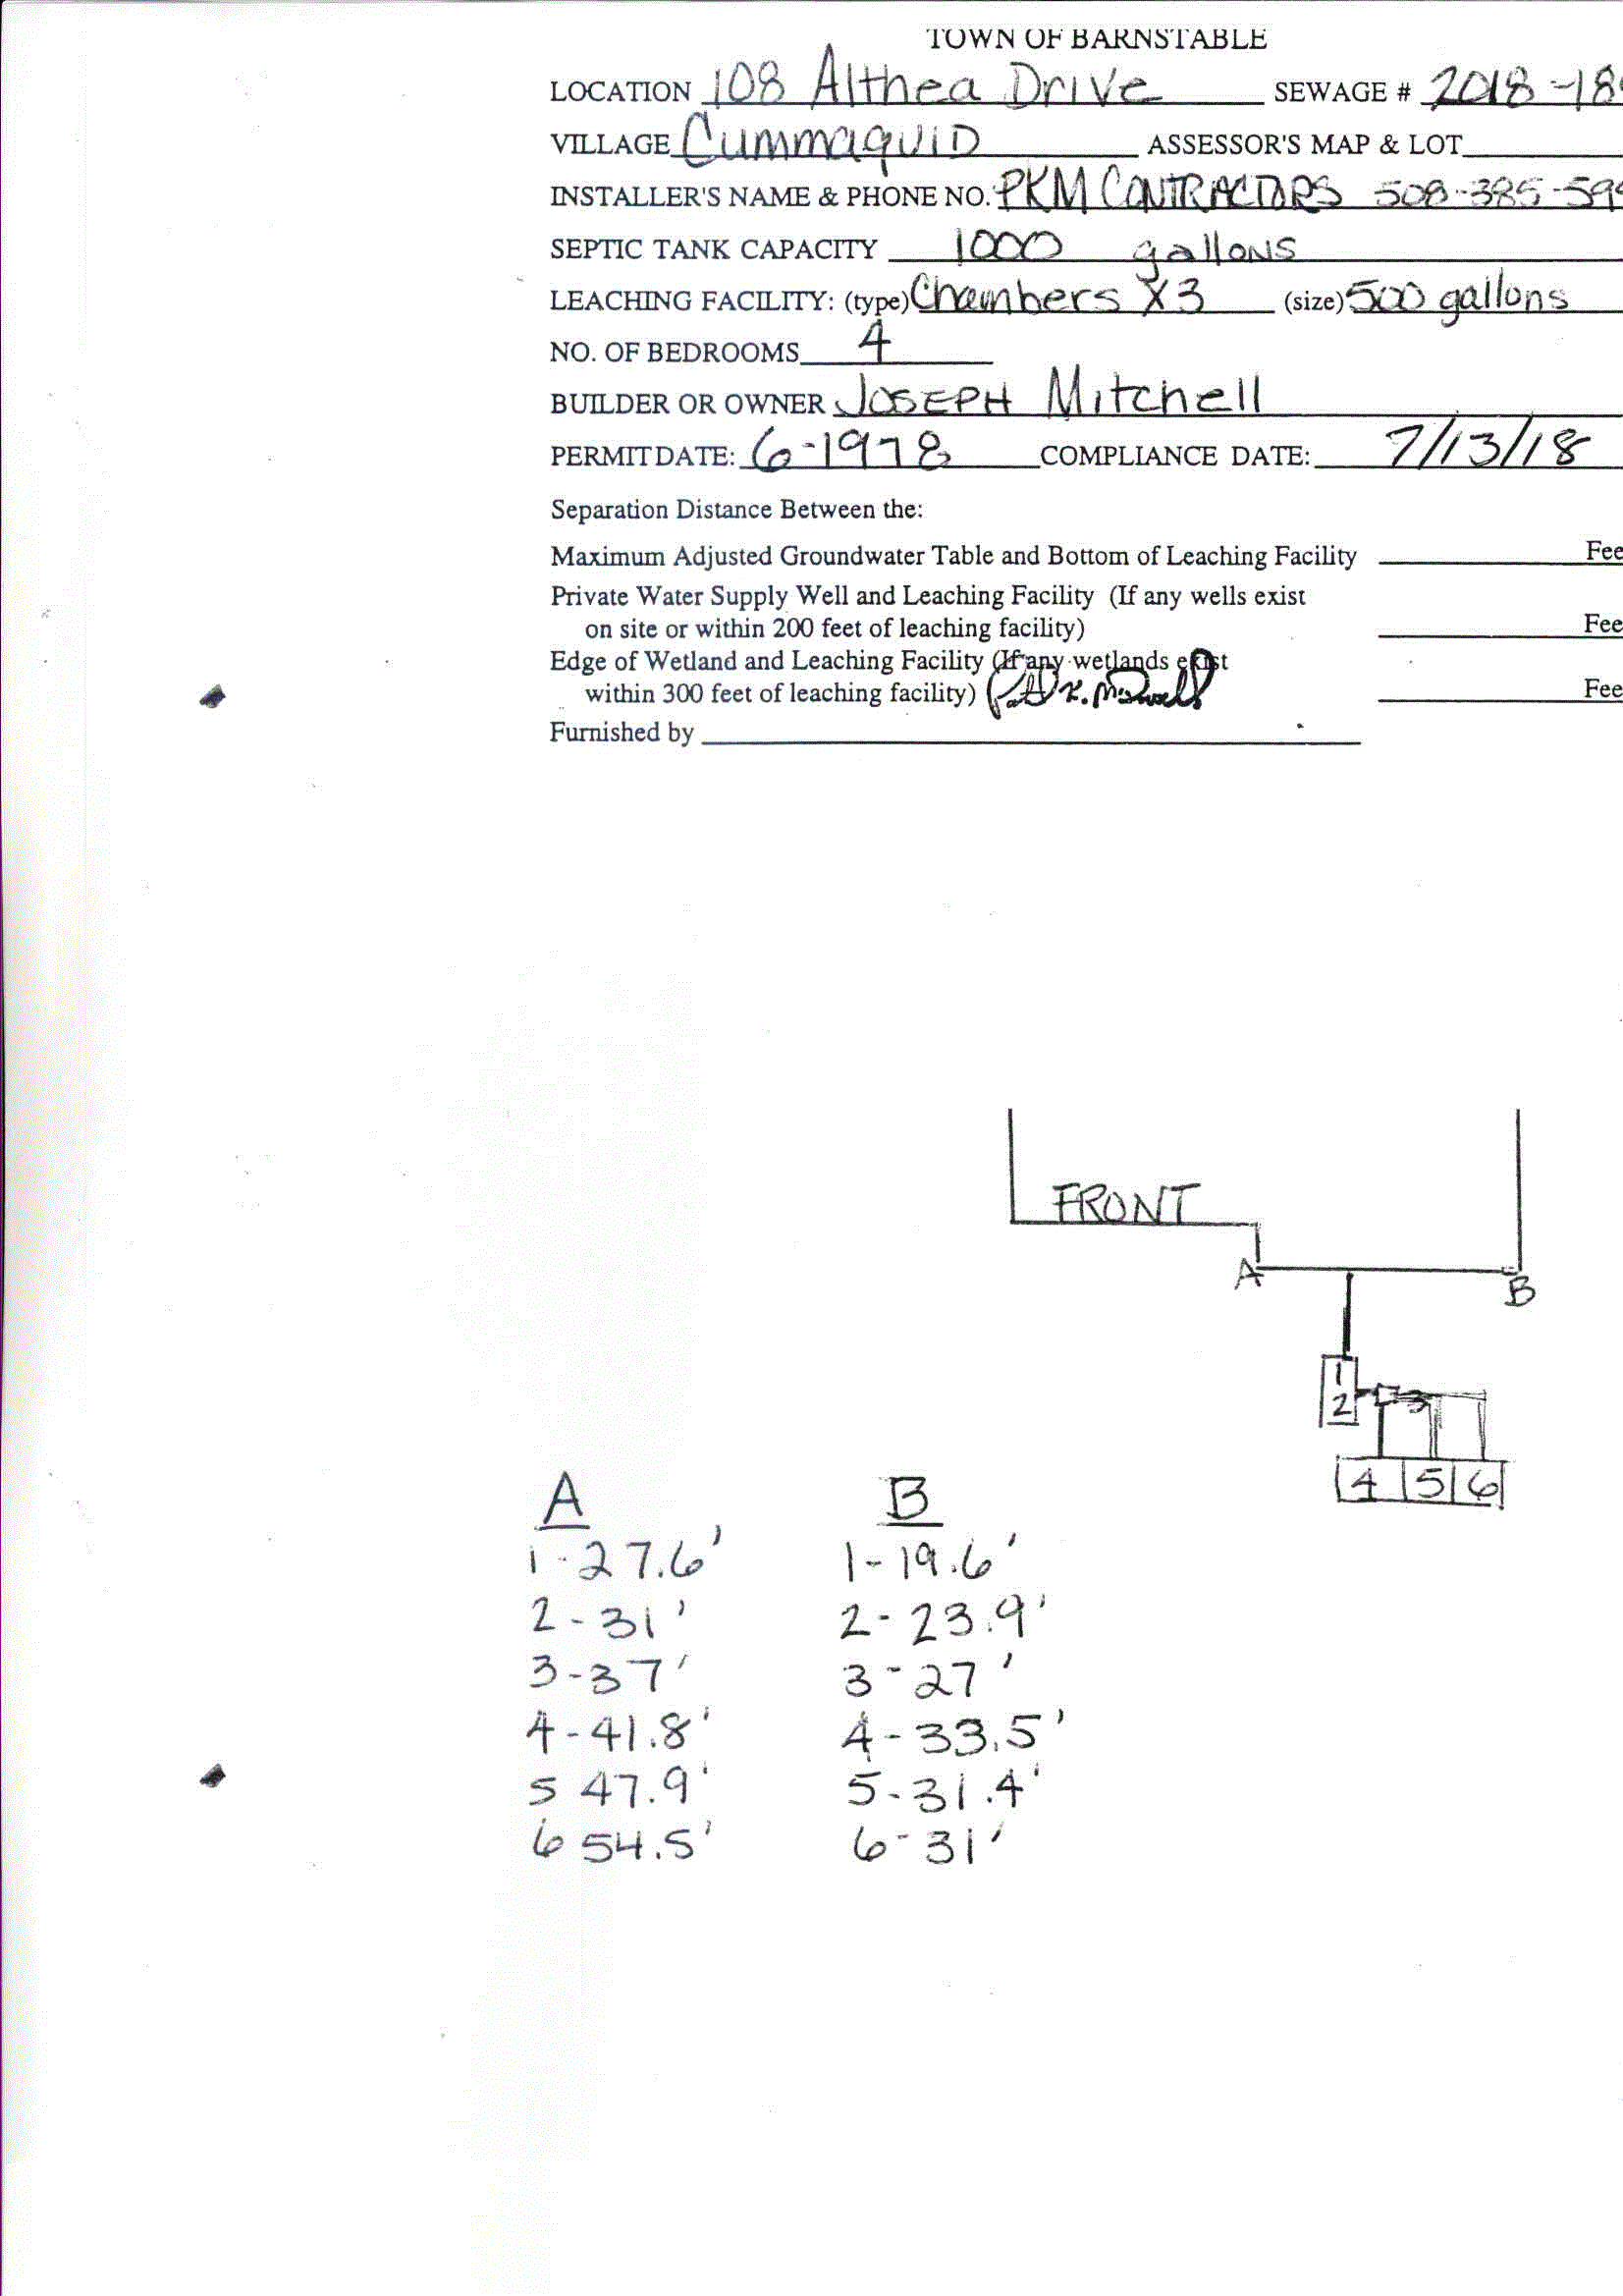 TOWN OF BARNSTABLE
LOCATION 108 Althea Drive SEWAGE # 2018-18
VILLAGE Cummaquid ASSESSOR'S MAP & LOT
INSTALLER'S NAME & PHONE NO. PKM CONTRACTORS 508-385-59
SEPTIC TANK CAPACITY 1000 gallons
LEACHING FACILITY: (type) Chambers X3 (size) 500 gallons
NO. OF BEDROOMS 4
BUILDER OR OWNER JOSEPH Mitchell
PERMIT DATE: 6-1978 COMPLIANCE DATE: 7/13/18
Separation Distance Between the:
Maximum Adjusted Groundwater Table and Bottom of Leaching Facility Fee
Private Water Supply Well and Leaching Facility (If any wells exist
on site or within 200 feet of leaching facility) Fee
Edge of Wetland and Leaching Facility (If any wetlands exist
within 300 feet of leaching facility) Fee
Furnished by
FRONT
A B
1
2 3
4 5 6
A B
1-27.6' 1-19.6'
2-31' 2-23.9'
3-37' 3-27'
4-41.8' 4-33.5'
5 47.9' 5-31.4'
6 54.5' 6-31'